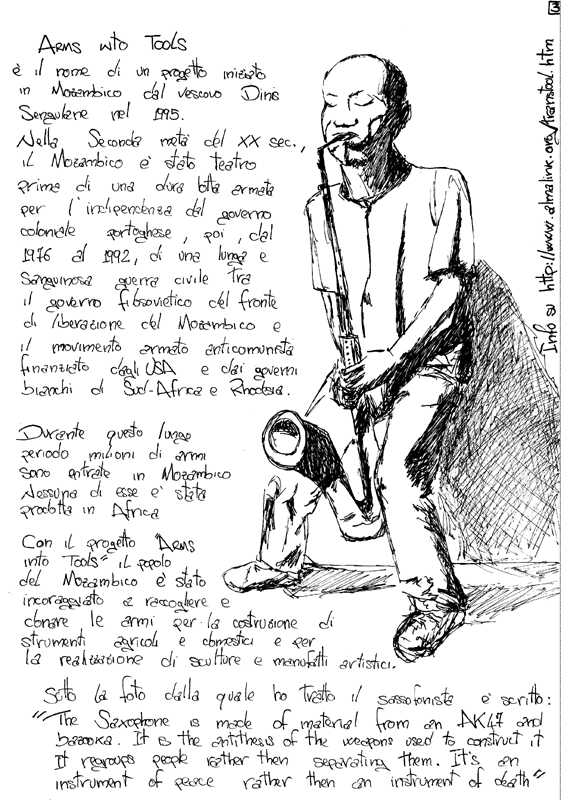 3
Arms into Tools
è il nome di un progetto iniziato
in Mozambico dal vescovo Dinis
Sengulane nel 1995.
Nella Seconda metà del XX sec.,
il Mozambico è stato teatro
prima di una dura lotta armata
per l'indipendenza dal governo
coloniale portoghese, poi, dal
1976 al 1992, di una lunga e
Sanguinosa guerra civile tra
il governo filosovietico del fronte
di liberazione del Mozambico e
il movimento armato anticomunista
finanziato dagli USA e dai governi
bianchi di Sud-Africa e Rhodesia.
Durante questo lungo
periodo milioni di armi
sono entrate in Mozambico
Nessuna di esse è stata
prodotta in Africa
Con il progetto "Arms
into Tools" il popolo
del Mozambico è stato
incoraggiato a raccogliere e
donare le armi per la costruzione di
strumenti agricoli e domestici e per
la realizzazione di sculture e manufatti artistici.
Sotto la foto dalla quale ho tratto il sassofonista è scritto:
"The Saxophone is made of material from an AK47 and
bazooka. It is the antithesis of the weapons used to construct it
It regroups people rather then separating them. It's an
instrument of peace rather then an instrument of death"
Info su http://www.almalink.org/transtool.htm